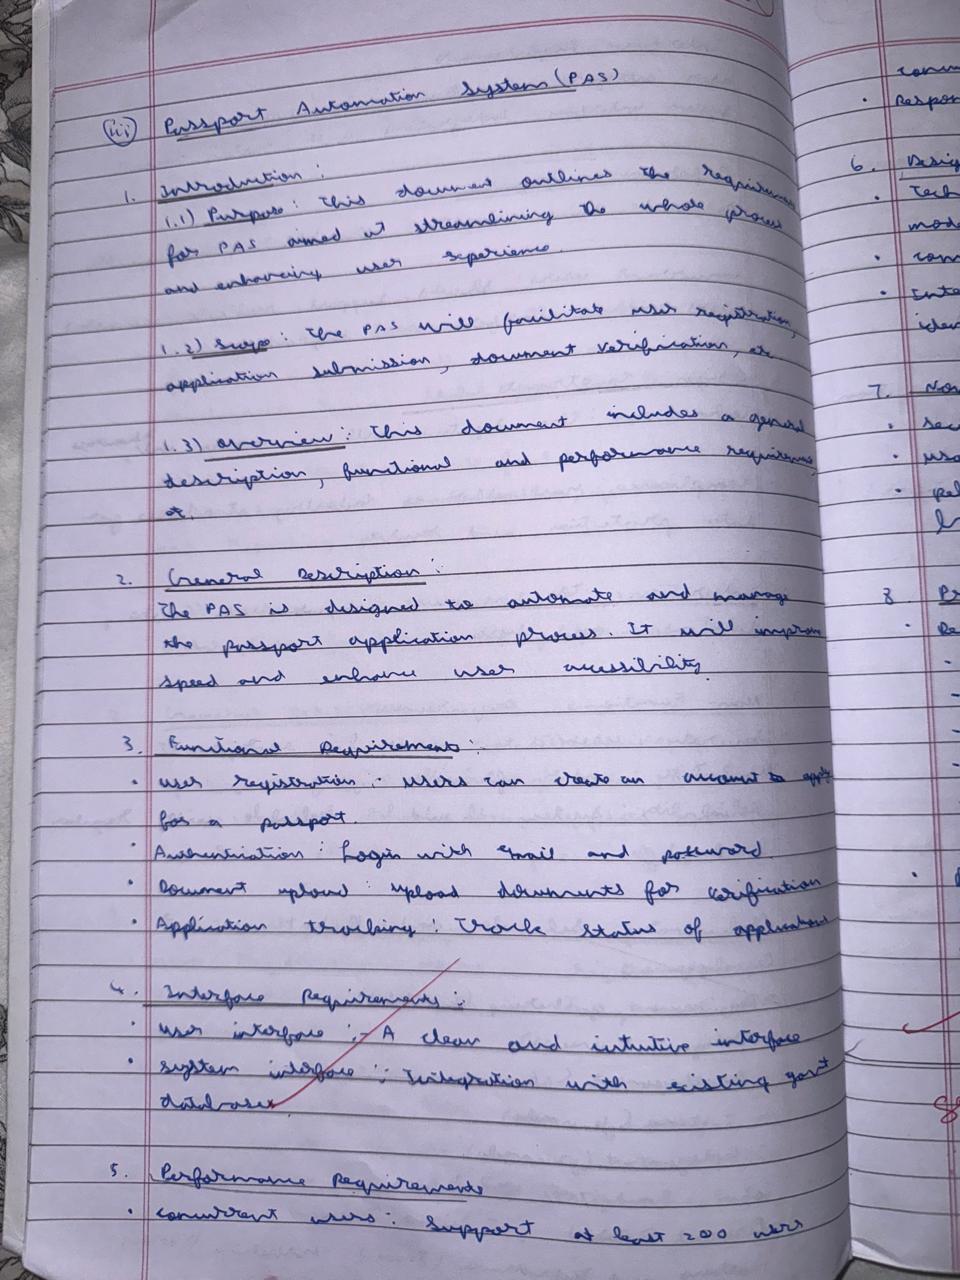 iii) Passport Automation System (PAS)
1. Introduction :
1.1) Purpose : This document outlines the requirements
for PAS aimed at streamlining the whole process
and enhancing user experience.
1.2) Scope : The PAS will facilitate user registration,
application submission, document verification, etc
1.3) Overview : This document includes a general
description, functional and performance requirements,
etc.
2. General Description :
The PAS is designed to automate and manage
the passport application process. It will improve
speed and enhance user accessibility.
3. Functional Requirements :
• User registration : Users can create an account to apply
for a passport.
• Authentication : Login with email and password
• Document upload : upload documents for verification
• Application tracking : Track status of applications
4. Interface Requirements :
• User interface :- A clean and intuitive interface
• System interface : Integration with existing govt
databases
5. Performance Requirements
• Concurrent users : Support at least 200 users
• Respon
6. Desig
• Tech
mod
• con
• Inte
iden
7. Non
• sec
• usa
• Rel
8 Pr